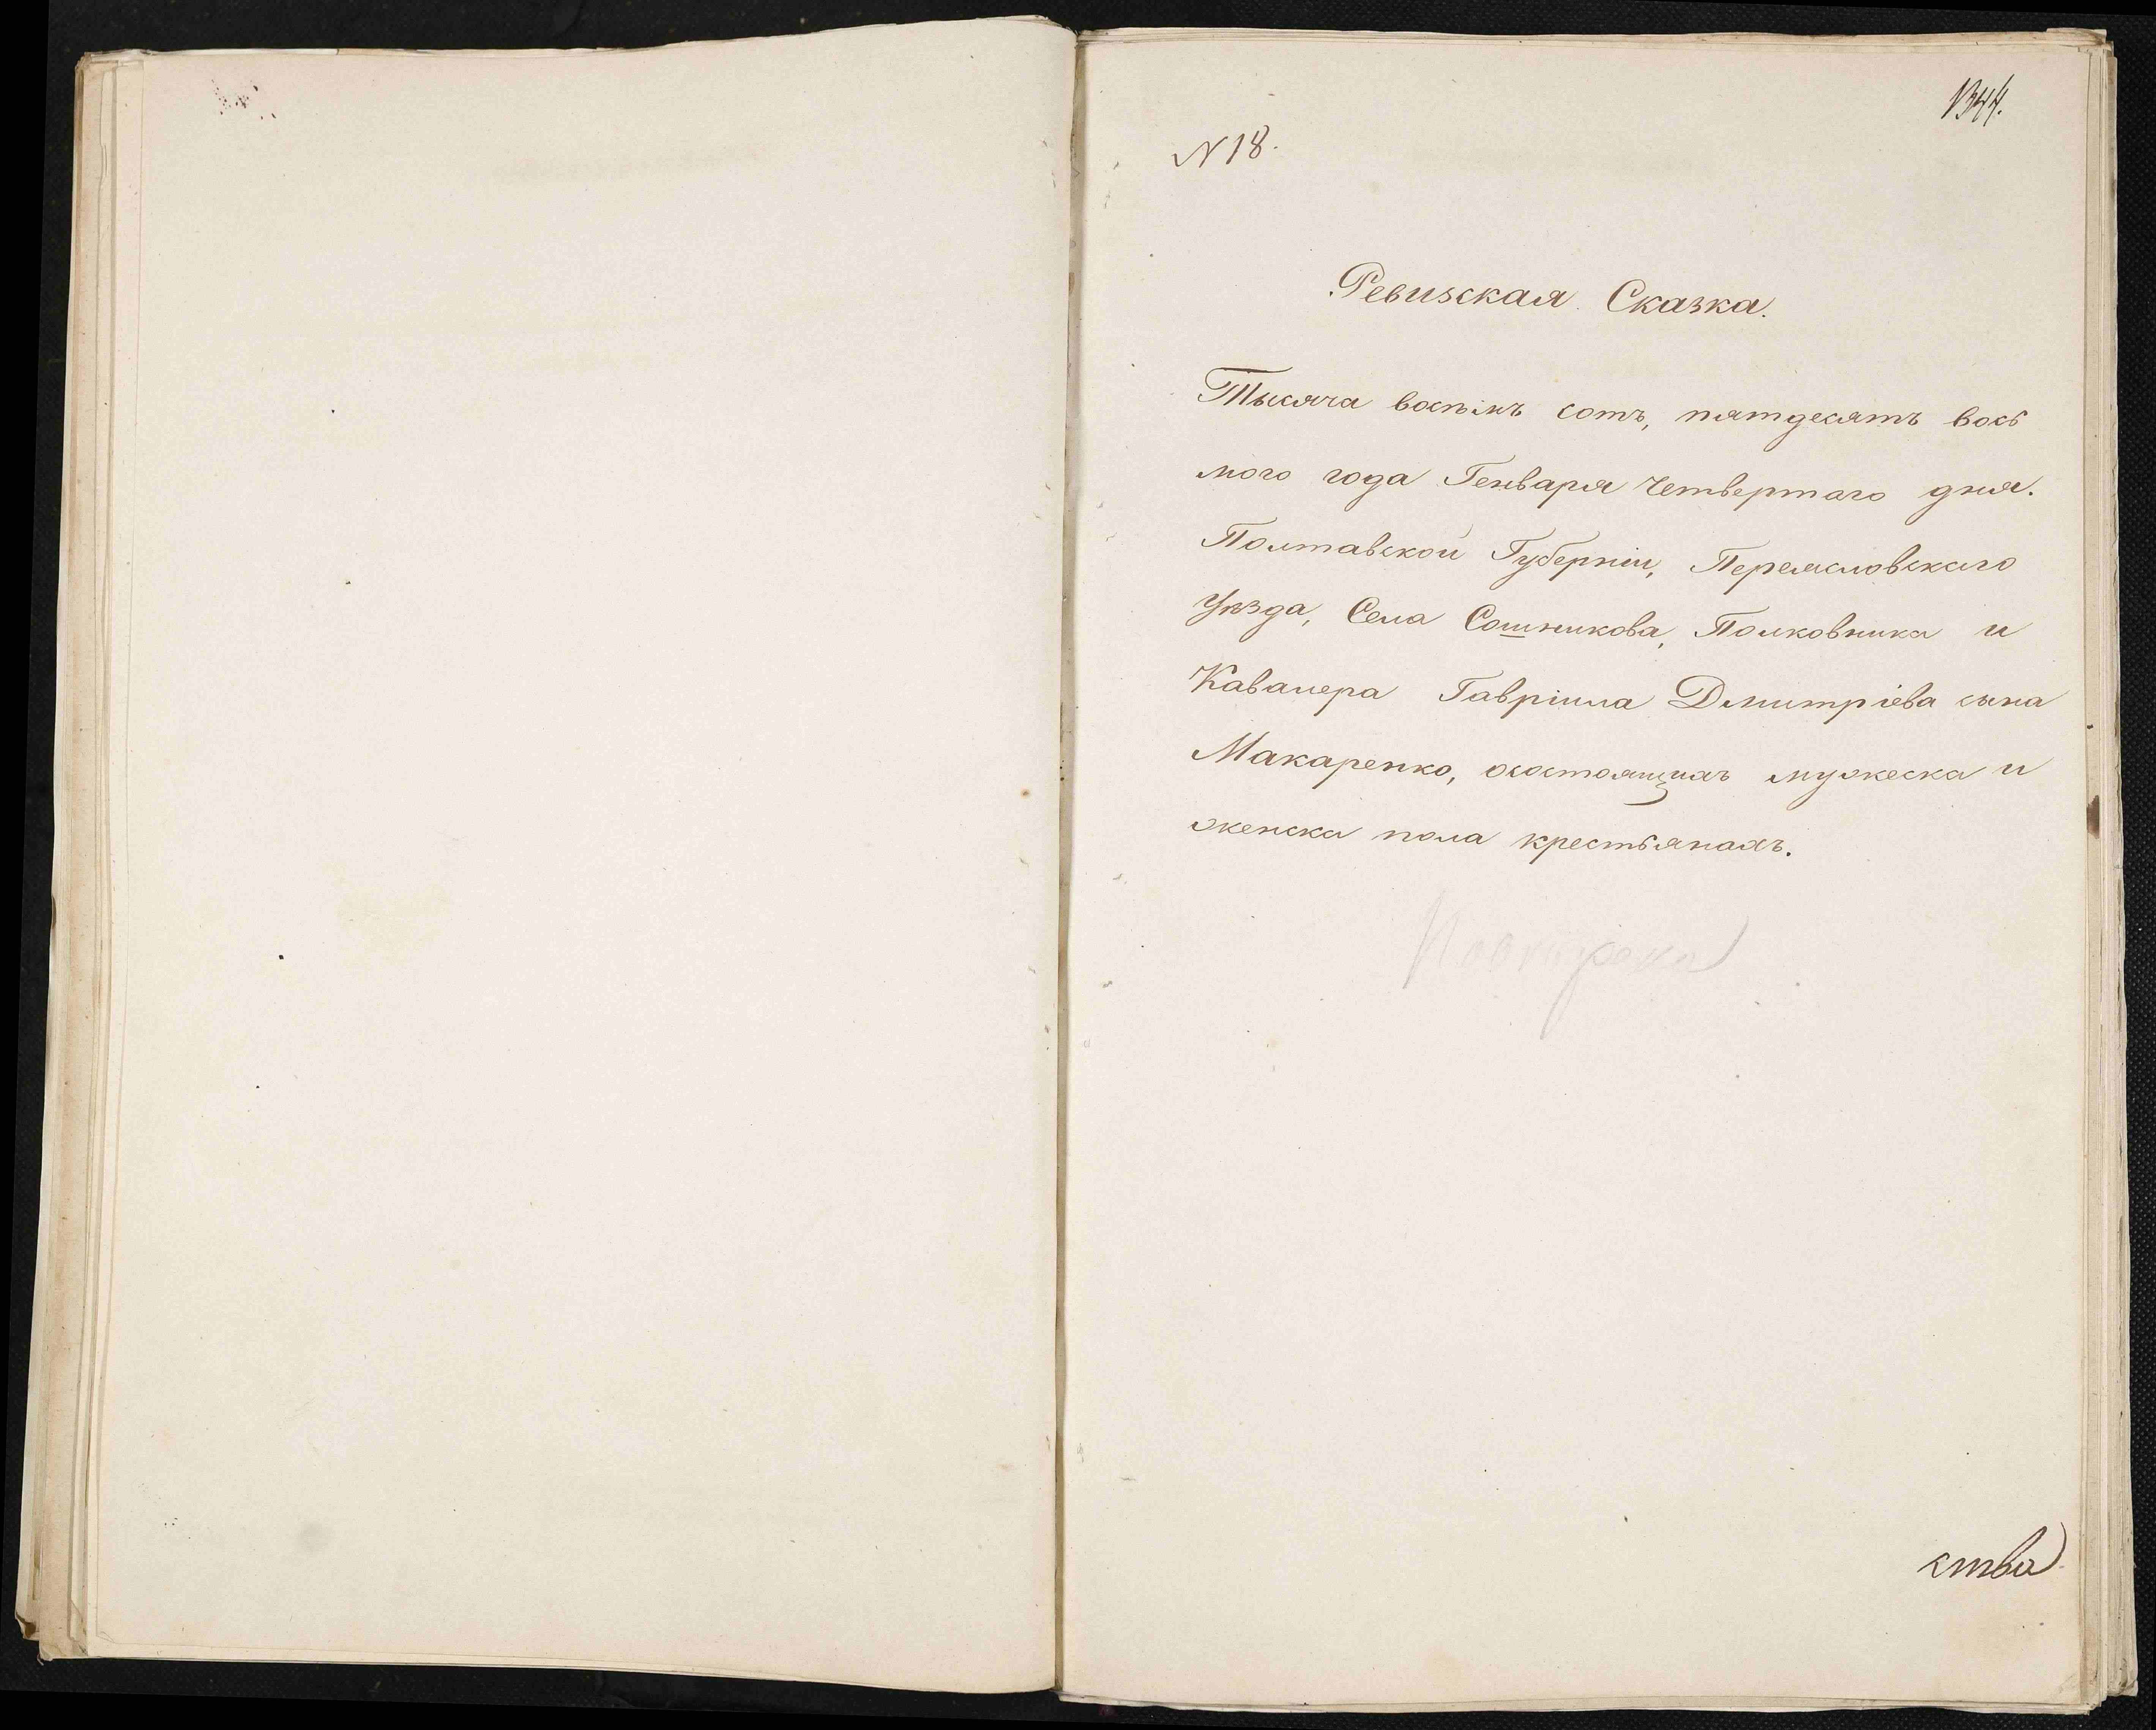 1344.
N 18.
Ревизская Сказка.
Тысяча восѣмъ сотъ, пятдесятъ вось
мого года Генваря Четвертаго дня.
Полтавской Губерніи, Переясловскаго
Уѣзда, Села Сошникова, Полковника и
Кавалера Гавріила Дмитріева сына
Макаренко, осостоящихъ мужеска и
женска пола крестьянахъ.
ства